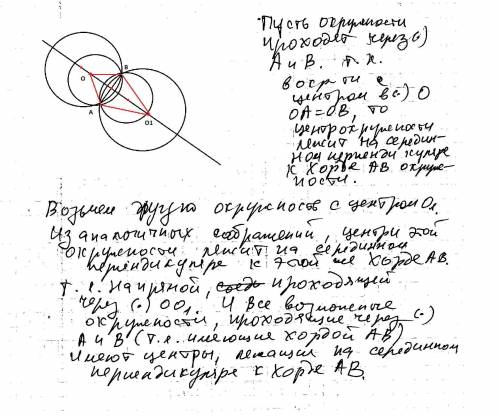 Пусть окружности
проходят через (·)
A и B. т.к.
в окр-ти с
центром в (·) O
OA=OB, то
центр окружности
лежит на середин-
ном перпендикуляре
к хорде AB окруж-
ности.
B
O
A
O1
Возьмем другую окружность с центром O1.
Из аналогичных соображений, центр этой
окружности лежит на серединном
перпендикуляре к этой же хорде AB.
Т.е. на прямой, проходящей
через (·) OO1. И все возможные
окружности, проходящие через (·)
A и B (т.е. имеющие хордой AB)
имеют центры, лежащие на серединном
перпендикуляре к хорде AB.